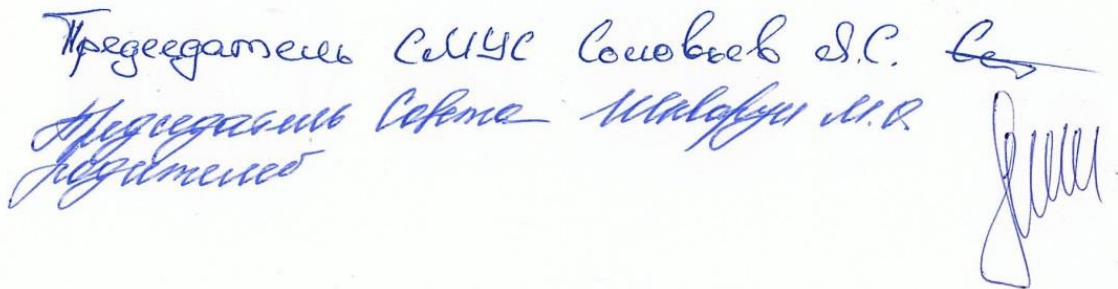 Председатель СМУС Соловьев Я.С.
Председатель Совета М.О.
родителей